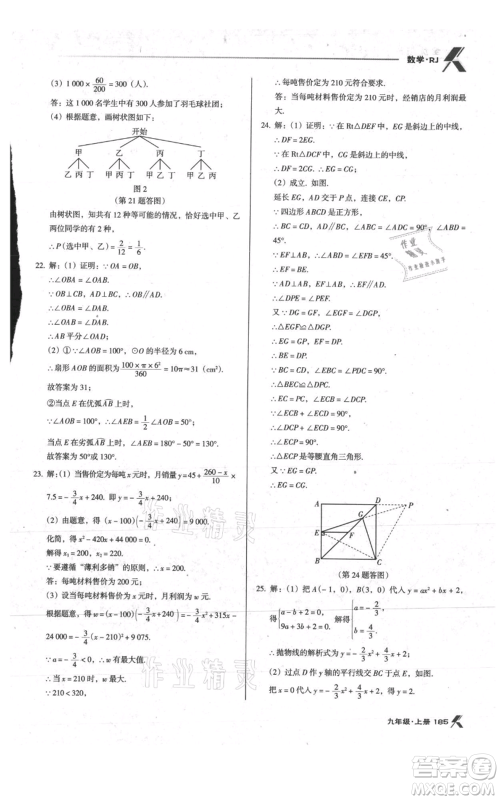 数学·RJ
(3) 1 000×60/200=300（人）.
答：这 1 000 名学生中有 300 人参加了羽毛球社团；
(4) 根据题意，画树状图如下：
开始
甲 乙 丙 丁
乙 丙 丁 甲 丙 丁 甲 乙 丁 甲 乙 丙
图 2
（第 21 题答图）
由树状图，知共有 12 种等可能的情况，恰好选中甲、乙
两位同学的有 2 种，
∴P（选中甲、乙）=2/12=1/6.
22. 解：(1) 证明：∵OA=OB，
∴∠OBA=∠OAB.
∵OB⊥CB，AD⊥CB，∴OB∥AD.
∴∠OBA=∠DAB. ∴∠OAB=∠DAB.
∴AB 平分∠OAD.
(2) ①∵∠AOB=100°，⊙O 半径为 6 cm，
∴扇形 AOB 的面积为100×π×6²/360=10π≈31(cm²).
故答案为 31；
②当点 E 在优弧AB上时，
∵∠AOB=100°，∴∠AEB=1/2∠AOB=50°；
当点 E 在劣弧AB上时，∠AEB=180°-50°=130°.
故答案为 50°或 130°.
23. 解：(1) 当售价定为每吨 x 元时，月销量 y=45+(260-x)/10×
7.5=-3/4x+240. 即 y=-3/4x+240.
(2) 由题意，得 (x-100)(-3/4x+240)=9 000.
化简，得 x²-420x+44 000=0.
解得 x₁=200，x₂=220.
∵要遵循“薄利多销”的原则，
∴x₂=220 不合题意，舍去.
答：每吨材料售价为 200 元.
(3) 设每吨材料售价为 x 元时，月利润为 w 元.
根据题意，得 w=(x-100)(-3/4x+240)=-3/4x²+315x-
24 000=-3/4(x-210)²+9 075.
∵a=-3/4<0，∴w 有最大值.
∴当 x=210 时，w 最大.
∵210<320，
∴每吨售价定为 210 元符合要求.
答：当每吨材料售价为 210 元时，经销店的月利润最
大.
24. 解：(1) 证明：∵在 Rt△DEF 中，EG 是斜边上的中线，
∴DF=2EG.
∵在 Rt△DCF 中，CG 是斜边上的中线，
∴DF=2CG. ∴EG=CG.
(2) 成立. 如图.
∵四边形 ABCD 为正方形，
∴BC=CD，∠BCD=∠ADC=90°，∠ABD=
45°.
∵EF⊥AB，∴∠EFB=∠ABD=45°.
∴EF=BE.
∵AD⊥AB，EF⊥AB，∴AD∥EF.
∴∠DPE=∠PEF.
又∵DG=GF，∠DGP=∠FGE，
∴△DGP≌△FGE.
∴EG=GP，EF=DP. ∴BE=DP.
又∵BC=CD，∠EBC=∠PDC=90°，
∴△BEC≌△DPC.
∴EC=CP，∠ECB=∠DCP.
∵∠ECB+∠ECD=90°，
∴∠ECD+∠DCP=90°.
∴∠ECP=90°.
∴△ECP 是等腰直角三角形.
∵EG=GP，
∴EG=CG.
A D P
G
E F
B C
（第 24 题答图）
25. 解：(1) 把 A(-1，0)，B(3，0) 代入 y=ax²+bx+2，
得{a-b+2=0，9a+3b+2=0. 解得{a=-2/3，b=4/3.
∴抛物线的解析式为 y=-2/3x²+4/3x+2.
(2) 过点 D 作 y 轴的平行线交 BC 于点 E，如图.
由 y=-2/3x²+4/3x+2，令 x=0，得 y=2.
九年级·上册 185
作业精灵
作业精灵